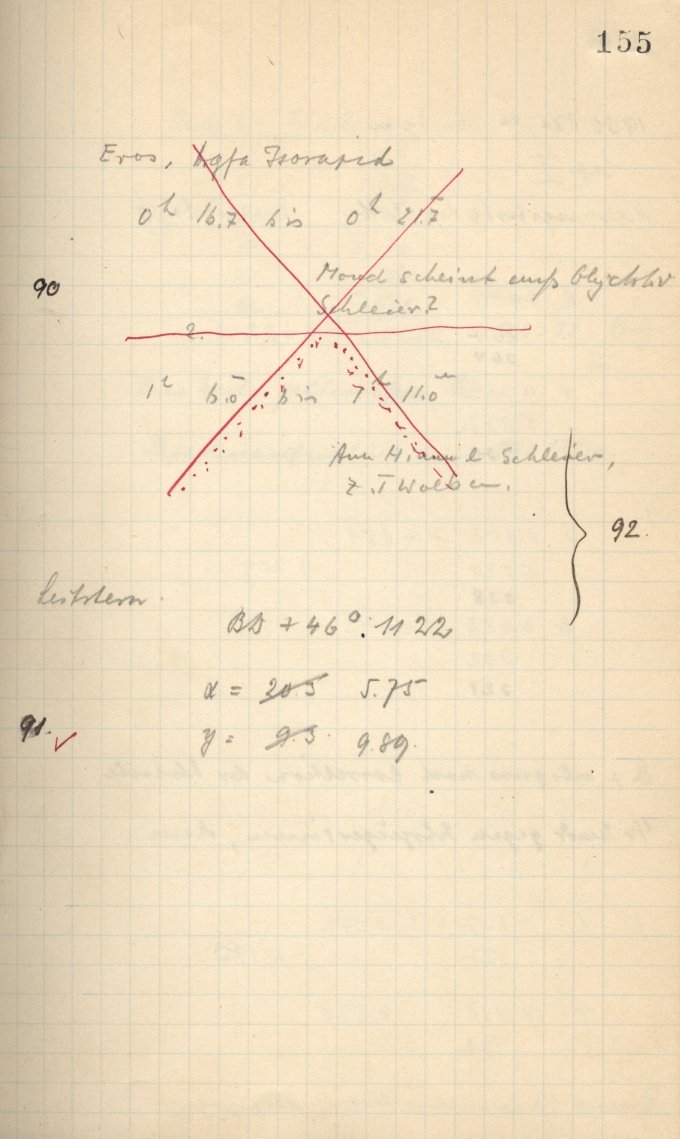 155
Eros, Agfa Isorapid
0h 16.7 bis 0h 21.7
90
Mond scheint aufs Objektiv
Schleier?
2.
1h 6.0 bis 1h 11.0m
Schleier,
z.T. Wolken.
92.
Leitstern.
BD + 46° 1122
x = 20.5 5.75
91.
y = 9.3 9.89.